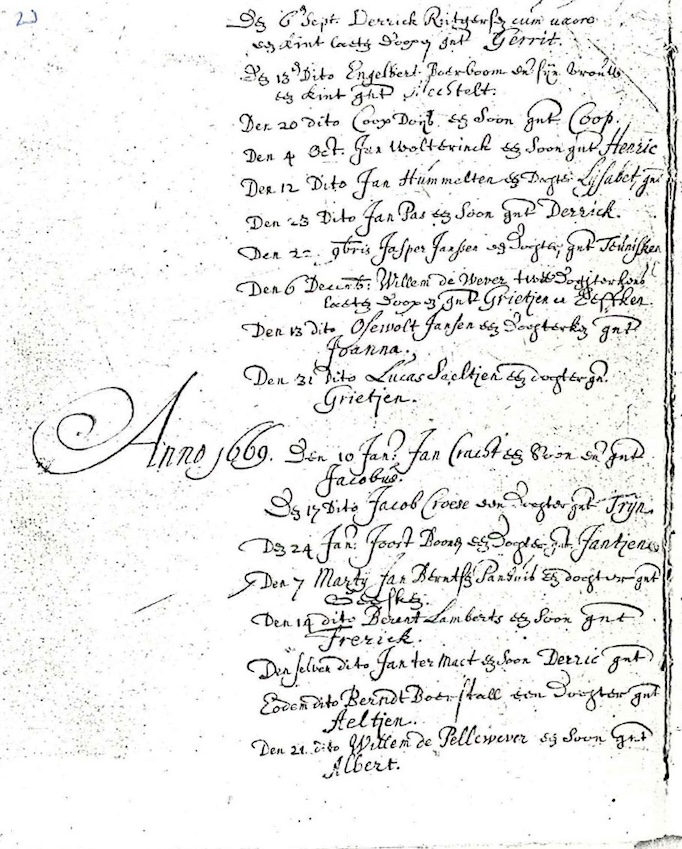 23
Den 6 Sept. Derrick Rutgersen cum uxore
een kint laeten doopen gnt Gerrit.
Den 13 Dito Engelbert Boerboom en sijn vrouw
een kint gnt Mechtelt.
Den 20 dito Coop en Soon gnt. Coop.
Den 4 Oct. Jan Wolterinck en Soon gnt Henric
Den 12 Dito Jan Hummelten en Dochter Lysabet gnt
Den Dito Jan Pas en Soon gnt Derrick.
Den 22 9bris Jasper Jansen en dochter gnt Teunisken
Den 6 Decemb: Willem de Wever twee dochterkens
laeten doopen gnt Grietjen en
Den 13 dito Osewolt Jansen een dochterken gnt
Joanna.
Den 31 Dito Lucas een dochter gn.
Grietjen.
Anno 1669. Den 10 Jan: Jan Cracht en Soon en gnt
Jacobus.
Den 17 Dito Jacob Croese een dochter gnt Trijn.
Den 24 Jan: Joost en Dochter gnt Jantjen
Den 7 Martij Jan Berntsen een dochter gnt
Den 14 dito Berent Lamberts en Soon gnt
Frerick.
Den selven dito Jan ter Mact en Soon Derric gnt
Eodem dito Berndt Boerstall een dochter gnt
Aeltjen.
Den 21. dito Willem de Pellewever en Soon gnt
Albert.